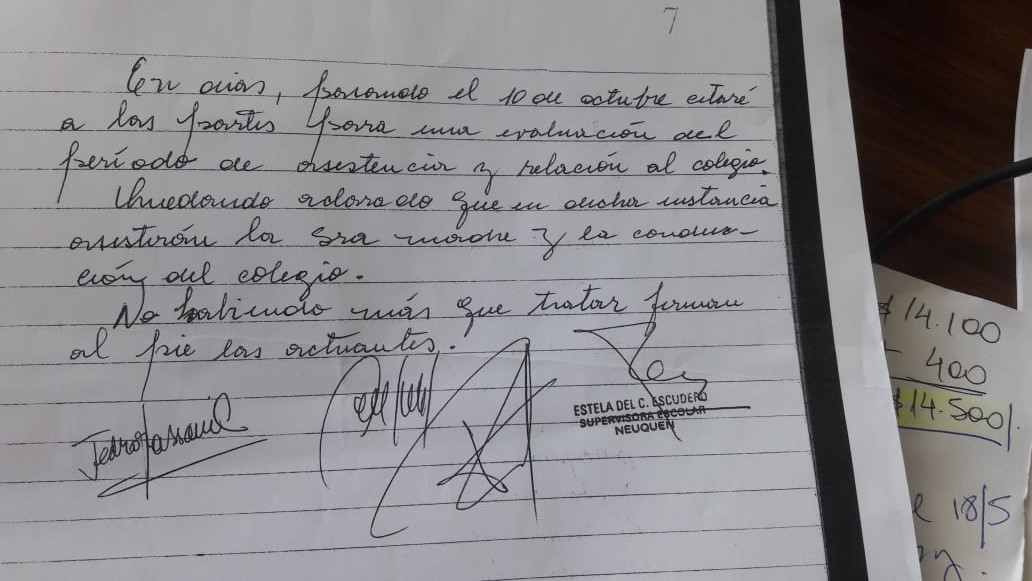 7
En dias, pasando el 10 de octubre citaré
a las partes para una evaluación del
período de asistencia y relación al colegio.
Quedando aclarado que en dicha instancia
asistirán la Sra madre y la conduc-
ción del colegio.
No habiendo más que tratar firman
al pie las actuantes.
ESTELA DEL C. ESCUDERO
SUPERVISORA ESCOLAR
NEUQUEN
$14.100
400
$14.500
18/5